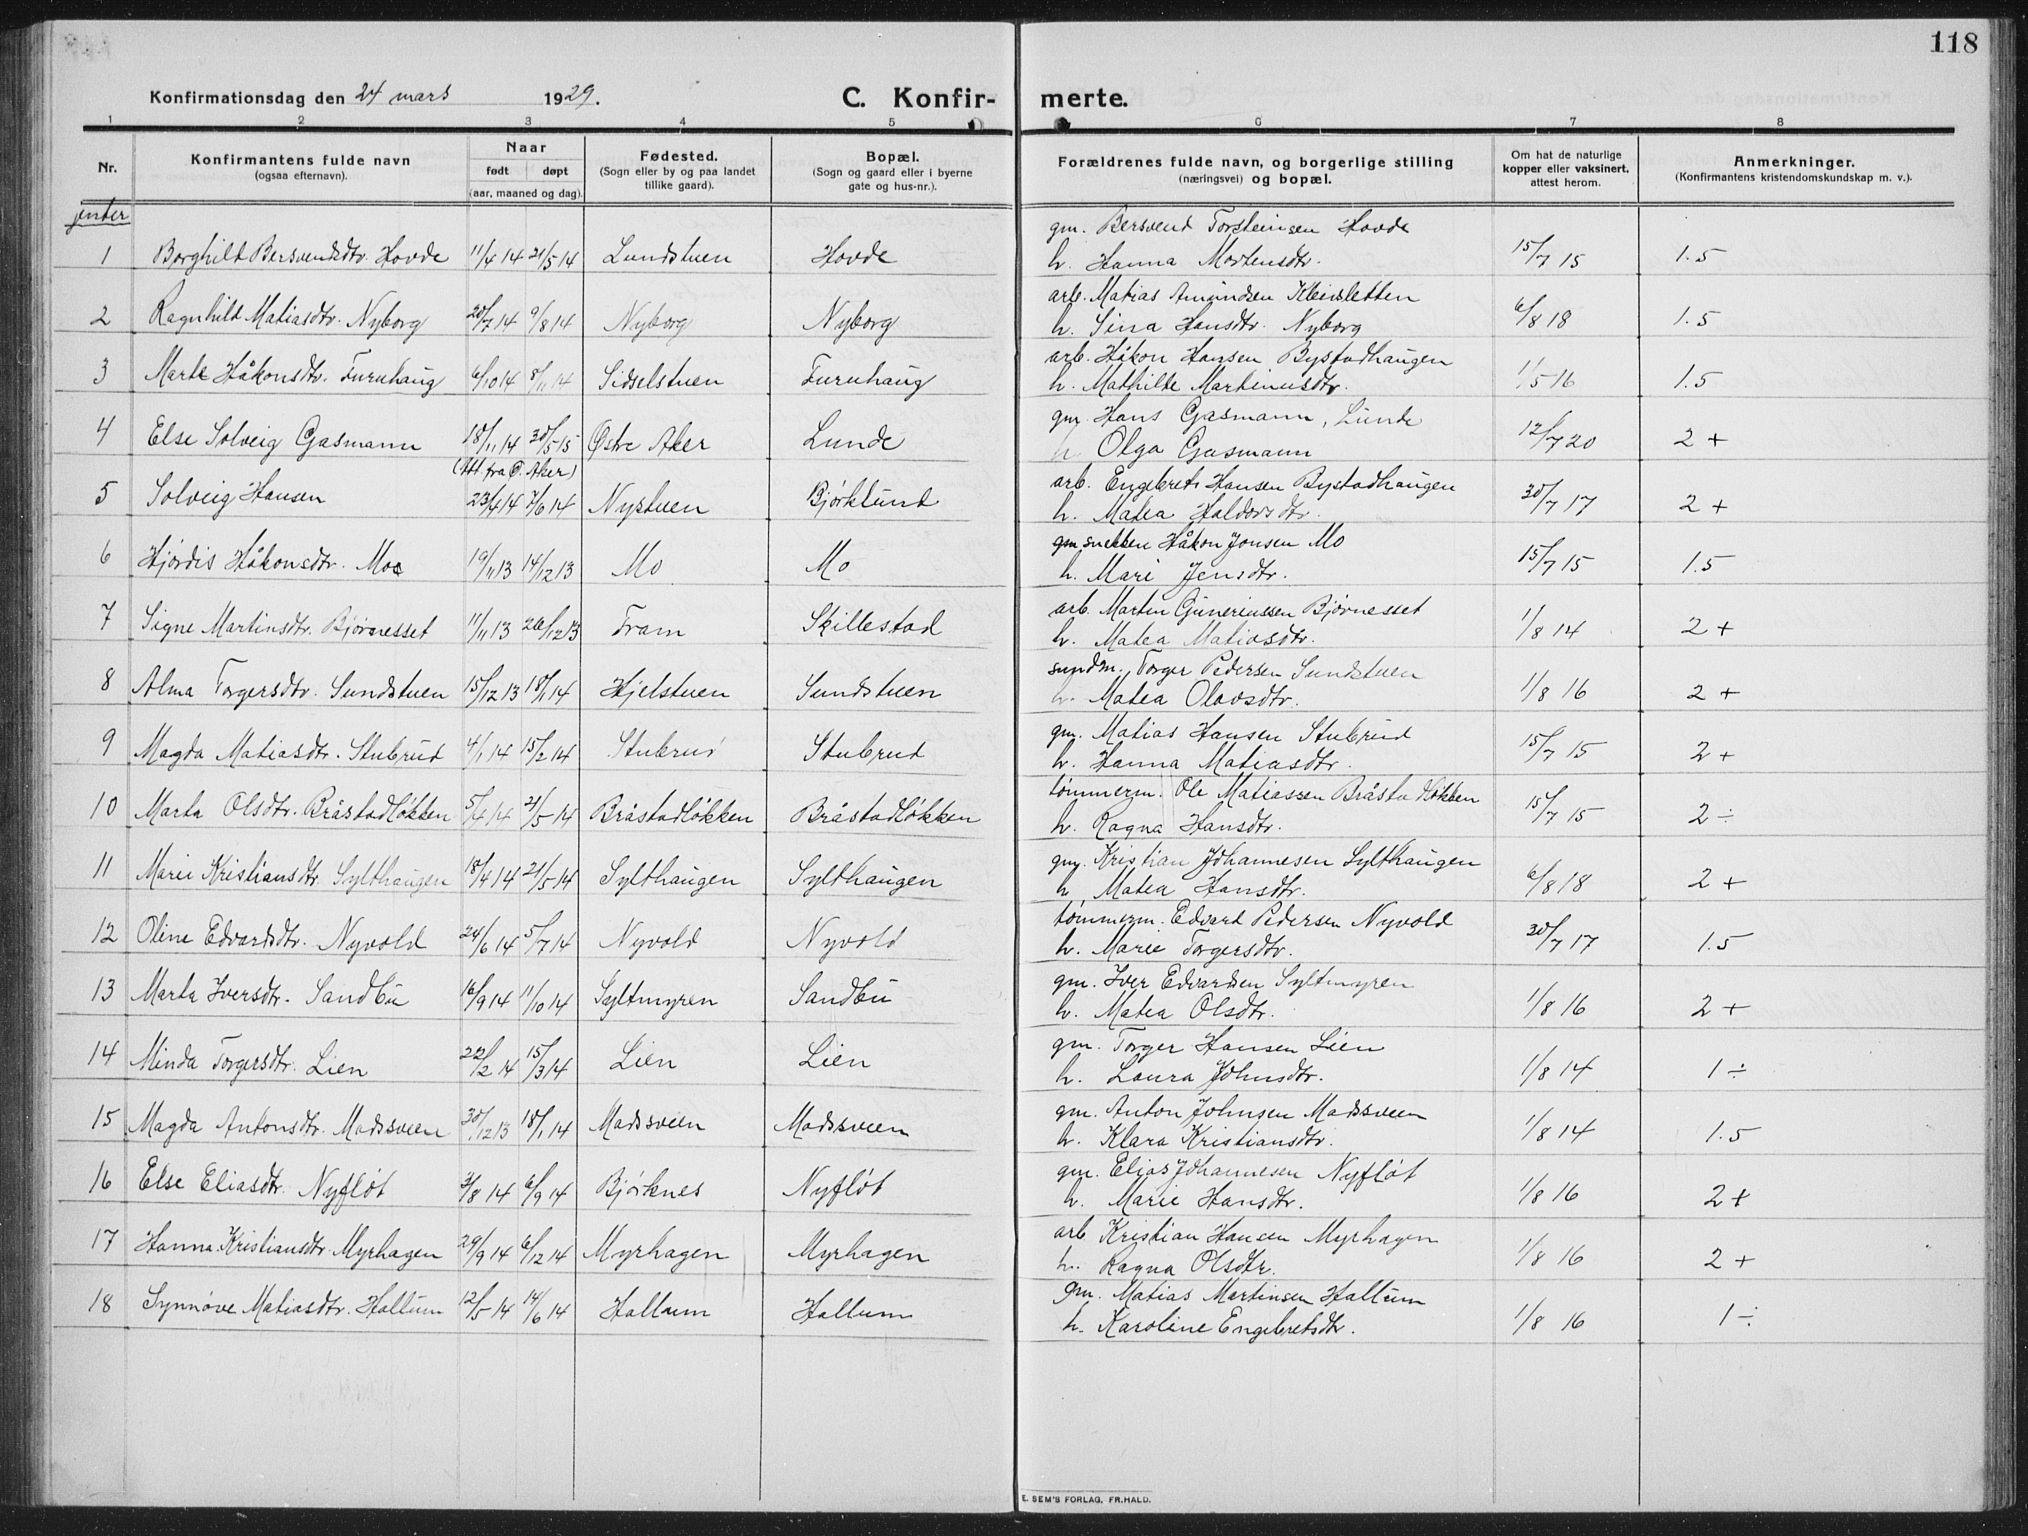 118
Konfirmationsdag den 24 mars 1929.
C. Konfirmerte.
1 2 3 4 5 6 7 8
Nr.
Konfirmantens fulde navn
(ogsaa efternavn).
Naar
født døpt
(aar, maaned og dag).
Fødested.
(Sogn eller by og paa landet
tillike gaard).
Bopæl.
(Sogn og gaard eller i byerne
gate og hus-nr.).
Forældrenes fulde navn, og borgerlige stilling
(næringsvei) og bopæl.
Om hat de naturlige
kopper eller vaksinert,
attest herom.
Anmerkninger.
(Konfirmantens kristendomskundskap m. v.).
jenter
gm. Bersvend Torsteinsen Hovde
1 Borghild Bersvendsdtr. Hovde 11/4 14 21/5 14 Lundstuen Hovde h. Hanna Mortensdtr. 15/7 15 1.5
arb. Matias Amundsen Kleivsletten
2 Ragnhild Matiasdtr. Nyborg 20/7 14 9/8 14 Nyborg Nyborg h. Sina Hansdtr. Nyborg 6/8 18 1.5
arb. Håkon Hansen Bystadhaugen
3 Marte Håkonsdtr. Furuhaug 6/10 14 8/11 14 Sidselstuen Furuhaug h. Mathilde Martinusdtr. 1/5 16 1.5
gm. Hans Gasmann, Lunde
4 Else Solveig Gasmann 18/11 14 30/5 15 Østre Aker Lunde h Olga Gasmann 12/7 20 2 +
(Att fra Ø. Aker)
arb. Engebret Hansen Bystadhaugen
5 Solveig Hansen 23/4 14 7/6 14 Nystuen Bjørklund h. Matea Haldorsdtr. 30/7 17 2 +
gm snekker Håkon Jonsen Mo
6 Hjørdis Håkonsdtr. Moe 19/11 13 14/12 13 Mo Mo h. Mari Jensdtr. 15/7 15 1.5
arb. Martin Guneriussen Bjørnesset
7 Signe Martinsdtr. Bjørnesset 11/11 13 26/12 13 Fram Skillestad h. Matea Matiasdtr. 1/8 14 2 +
sundm. Torger Pedersen Sundstuen
8 Alma Torgersdtr. Sundstuen 15/12 13 18/1 14 Hjelstuen Sundstuen h. Matea Olavsdtr. 1/8 16 2 +
gm. Matias Hansen Stubrud
9 Magda Matiasdtr. Stubrud 4/1 14 15/2 14 Stubrud Stubrud h. Hanna Matiasdtr. 15/7 15 2 +
tømmerm. Ole Matiassen Bråstadløkken
10 Marta Olsdtr. Bråstadløkken 5/4 14 21/5 14 Bråstadløkken Bråstadløkken h. Ragna Hansdtr. 15/7 15 2 ÷
gm. Kristian Johannesen Sylthaugen
11 Marie Kristiansdtr. Sylthaugen 18/4 14 21/5 14 Sylthaugen Sylthaugen h Matea Hansdtr. 6/8 18 2 +
tømmerm. Edvard Pedersen Nyvold
12 Oline Edvardsdtr. Nyvold 24/6 14 5/7 14 Nyvold Nyvold h. Marie Torgersdtr. 30/7 17 1.5
gm. Iver Edvardsen Syltmyren
13 Marta Iversdtr. Sandbu 16/9 14 11/10 14 Syltmyren Sandbu h. Matea Olsdtr. 1/8 16 2 +
gm. Torger Hansen Lien
14 Minda Torgersdtr. Lien 22/2 14 15/3 14 Lien Lien h. Laura Johnsdtr. 1/8 14 1 ÷
gm. Anton Johnsen Madssveen
15 Magda Antonsdtr. Madssveen 30/12 13 18/1 14 Madssveen Madssveen h. Klara Kristiansdtr. 1/8 14 1.5
gm. Elias Johannesen Nyfløt
16 Else Eliasdtr. Nyfløt 3/8 14 6/9 14 Bjørknes Nyfløt h. Marie Hansdtr. 1/8 16 2 +
arb Kristian Hansen Myrhagen
17 Hanna Kristiansdtr. Myrhagen 29/9 14 6/12 14 Myrhagen Myrhagen h. Ragna Olsdtr. 1/8 16 2 +
gm. Matias Martinsen Hallum
18 Synnøve Matiasdtr. Hallum 12/5 14 14/6 14 Hallum Hallum h. Karoline Engebretsdtr. 1/8 16 1 ÷
E. SEM'S FORLAG, FR.HALD.